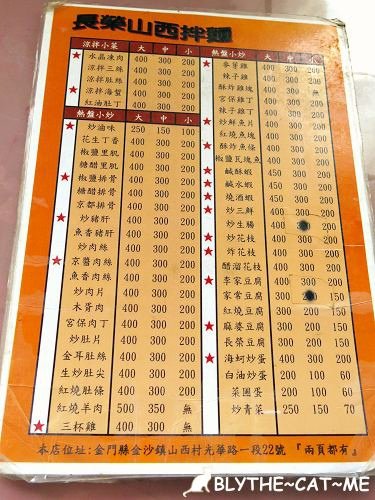 長榮山西拌麵
涼拌小菜 大 中 小
★ 水晶凍肉 400 300 200
涼拌三絲 400 300 200
涼拌肚絲 400 300 200
★ 涼拌海蟹 400 300 200
紅油肚丁 400 300 200
熱盤小炒 大 中 小
★ 炒滷味 250 150 100
花生丁香 400 300 200
椒鹽里肌 400 300 200
糖醋里肌 400 300 200
★ 椒鹽排骨 400 300 200
糖醋排骨 400 300 200
京都排骨 400 300 200
★ 炒豬肝 400 300 200
魚香豬肝 400 300 200
炒肉絲 400 300 200
★ 京醬肉絲 400 300 200
魚香肉絲 400 300 200
炒肉片 400 300 200
木胥肉 400 300 200
宮保肉丁 400 300 200
炒肚片 400 300 200
金耳肚絲 400 300 200
生炒肚尖 400 300 200
紅燒肚條 400 300 200
紅燒羊肉 500 350 無
★ 三杯雞 400 300 無
熱盤小炒 大 中 小
★ 麥芽雞 400 300 200
辣子雞 400 300 200
酥炸雞 400 300 無
宮保雞丁 400 300 200
辣子雞丁 400 300 200
★ 炒鮮魚片 400 300 200
紅燒魚塊 400 300 200
★ 酥炸魚條 400 300 200
椒鹽瓦塊魚 400 300 200
★ 鹹酥蝦 400 300 200
★ 鹹水蝦 450 300 200
★ 燒酒蝦 450 300 200
★ 炒三鮮 400 300 200
炒生腸 400 200
★ 炒花枝 400 300 200
★ 炸花枝 400 300 200
醋溜花枝 400 300 200
★ 李家豆腐 400 300 200
家常豆腐 300 150
紅燒豆腐 300 200 150
★ 麻婆豆腐 300 200 150
長榮豆腐 300 200 150
★ 海蚵炒蛋 400 300 200
白油炒蛋 300 200 150
菜圃蛋 300 200 100
炒青菜 250 150 70
本店位址:金門縣金沙鎮山西村光華路一段22號 『兩頁都有』
BLYTHE~CAT~ME